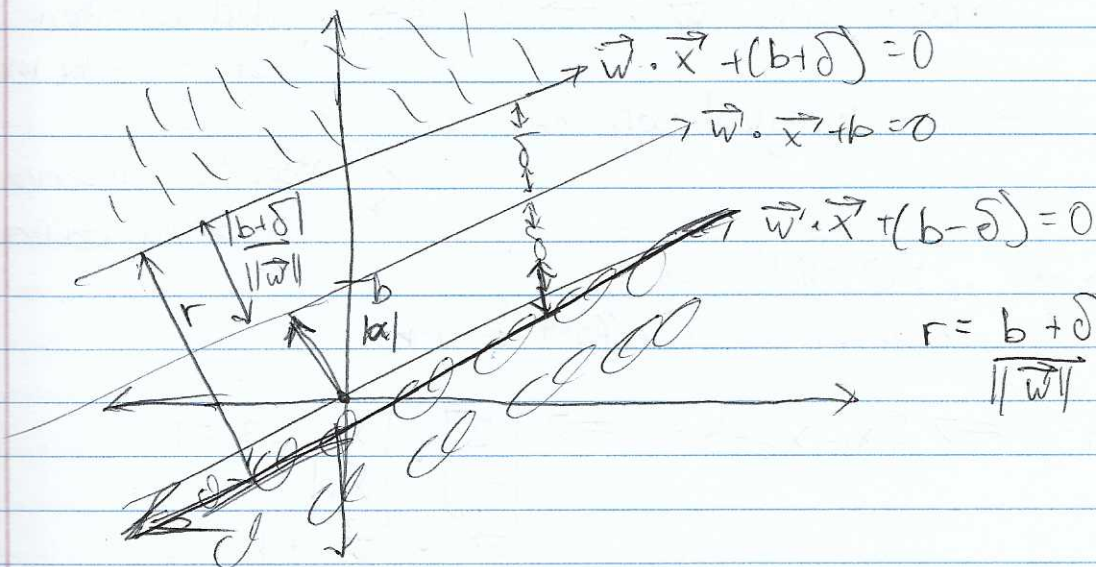 w⃗ · x⃗ + (b+δ) = 0
w⃗ · x⃗ + b = 0
w⃗ · x⃗ + (b-δ) = 0
δ
δ
|b+δ|
||w⃗||
r
b
|α|
r = b + δ
||w⃗||